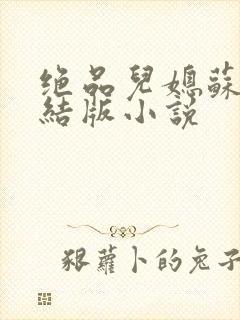 绝品兒媳蘇
結版小説
狠蘿卜的兔子